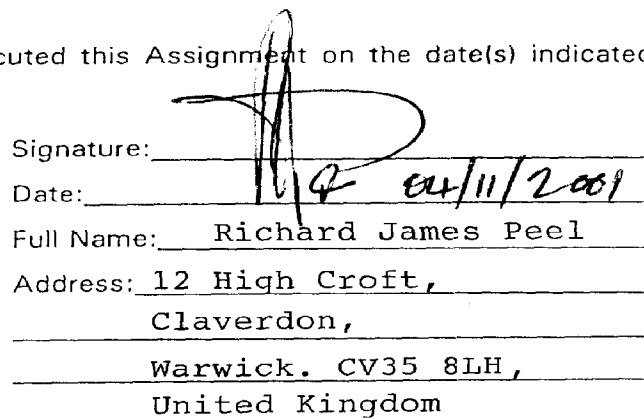 cuted this Assignment on the date(s) indicated
Signature:
Date: 04/11/2001
Full Name: Richard James Peel
Address: 12 High Croft,
Claverdon,
Warwick. CV35 8LH,
United Kingdom